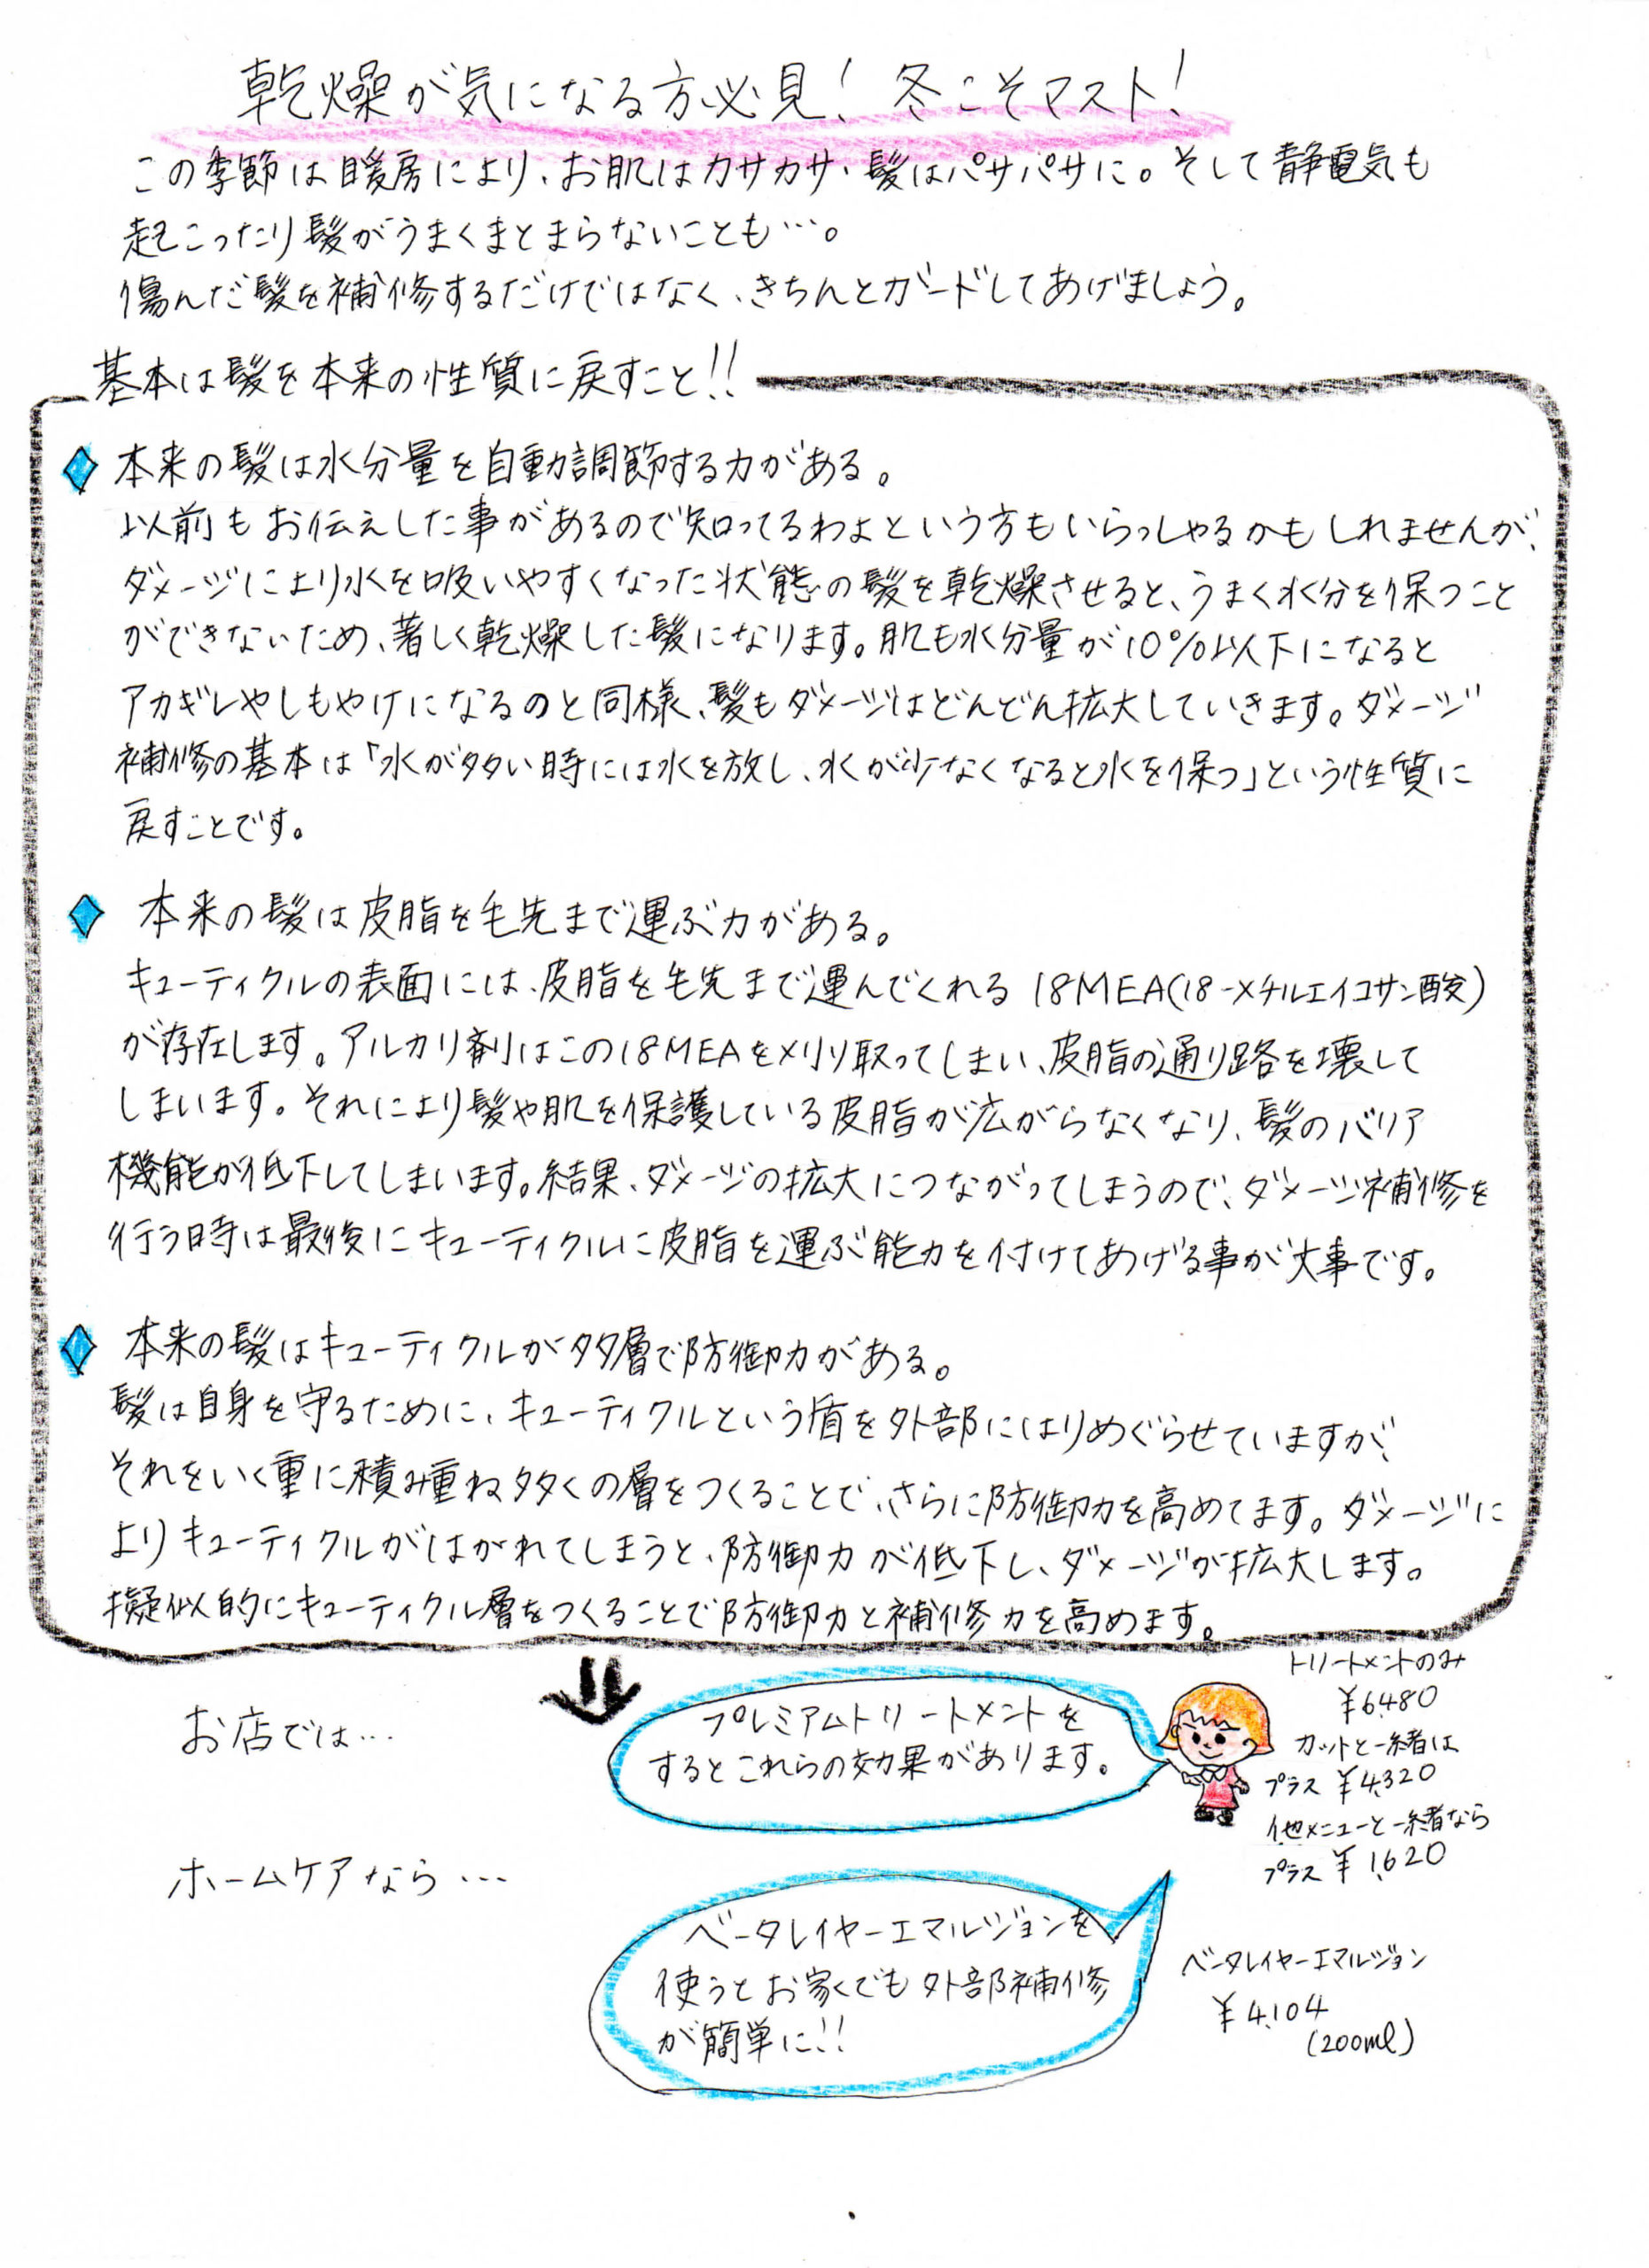 乾燥が気になる方必見! 冬こそマスト!
この季節は暖房により、お肌はカサカサ・髪はパサパサに。そして静電気も
起こったり髪がうまくまとまらないことも…。
傷んだ髪を補修するだけではなく、きちんとガードしてあげましょう。
基本は髪を本来の性質に戻すこと!!
本来の髪は水分量を自動調節する力がある。
以前もお伝えした事があるので知ってるわよという方もいらっしゃるかもしれませんが、
ダメージにより水を吸いやすくなった状態の髪を乾燥させると、うまく水分を保つこと
ができないため、著しく乾燥した髪になります。肌も水分量が10%以下になると
アカギレやしもやけになるのと同様、髪もダメージはどんどん拡大していきます。ダメージ
補修の基本は「水が多い時には水を放し、水が少なくなると水を保つ」という性質に
戻すことです。
本来の髪は皮脂を毛先まで運ぶ力がある。
キューティクルの表面には、皮脂を毛先まで運んでくれる 18MEA(18-メチルエイコサン酸)
が存在します。アルカリ剤はこの18MEAを刈り取ってしまい、皮脂の通り路を壊して
しまいます。それにより髪や肌を保護している皮脂が広がらなくなり、髪のバリア
機能が低下してしまいます。結果、ダメージの拡大につながってしまうので、ダメージ補修を
行う時は最後にキューティクルに皮脂を運ぶ能力を付けてあげる事が大事です。
本来の髪はキューティクルが多層で防御力がある。
髪は自身を守るために、キューティクルという盾を外部にはりめぐらせていますが、
それをいく重に積み重ね多くの層をつくることで、さらに防御力を高めてます。ダメージに
よりキューティクルがはがれてしまうと、防御力が低下し、ダメージが拡大します。
擬似的にキューティクル層をつくることで防御力と補修力を高めます。
お店では…
プレミアムトリートメントを
するとこれらの効果があります。
トリートメントのみ
¥6,480
カットと一緒は
プラス ¥4,320
他メニューと一緒なら
プラス ¥1,620
ホームケアなら…
ベータレイヤーエマルジョンを
使うとお家でも外部補修
が簡単に!!
ベータレイヤーエマルジョン
¥4,104
(200ml)